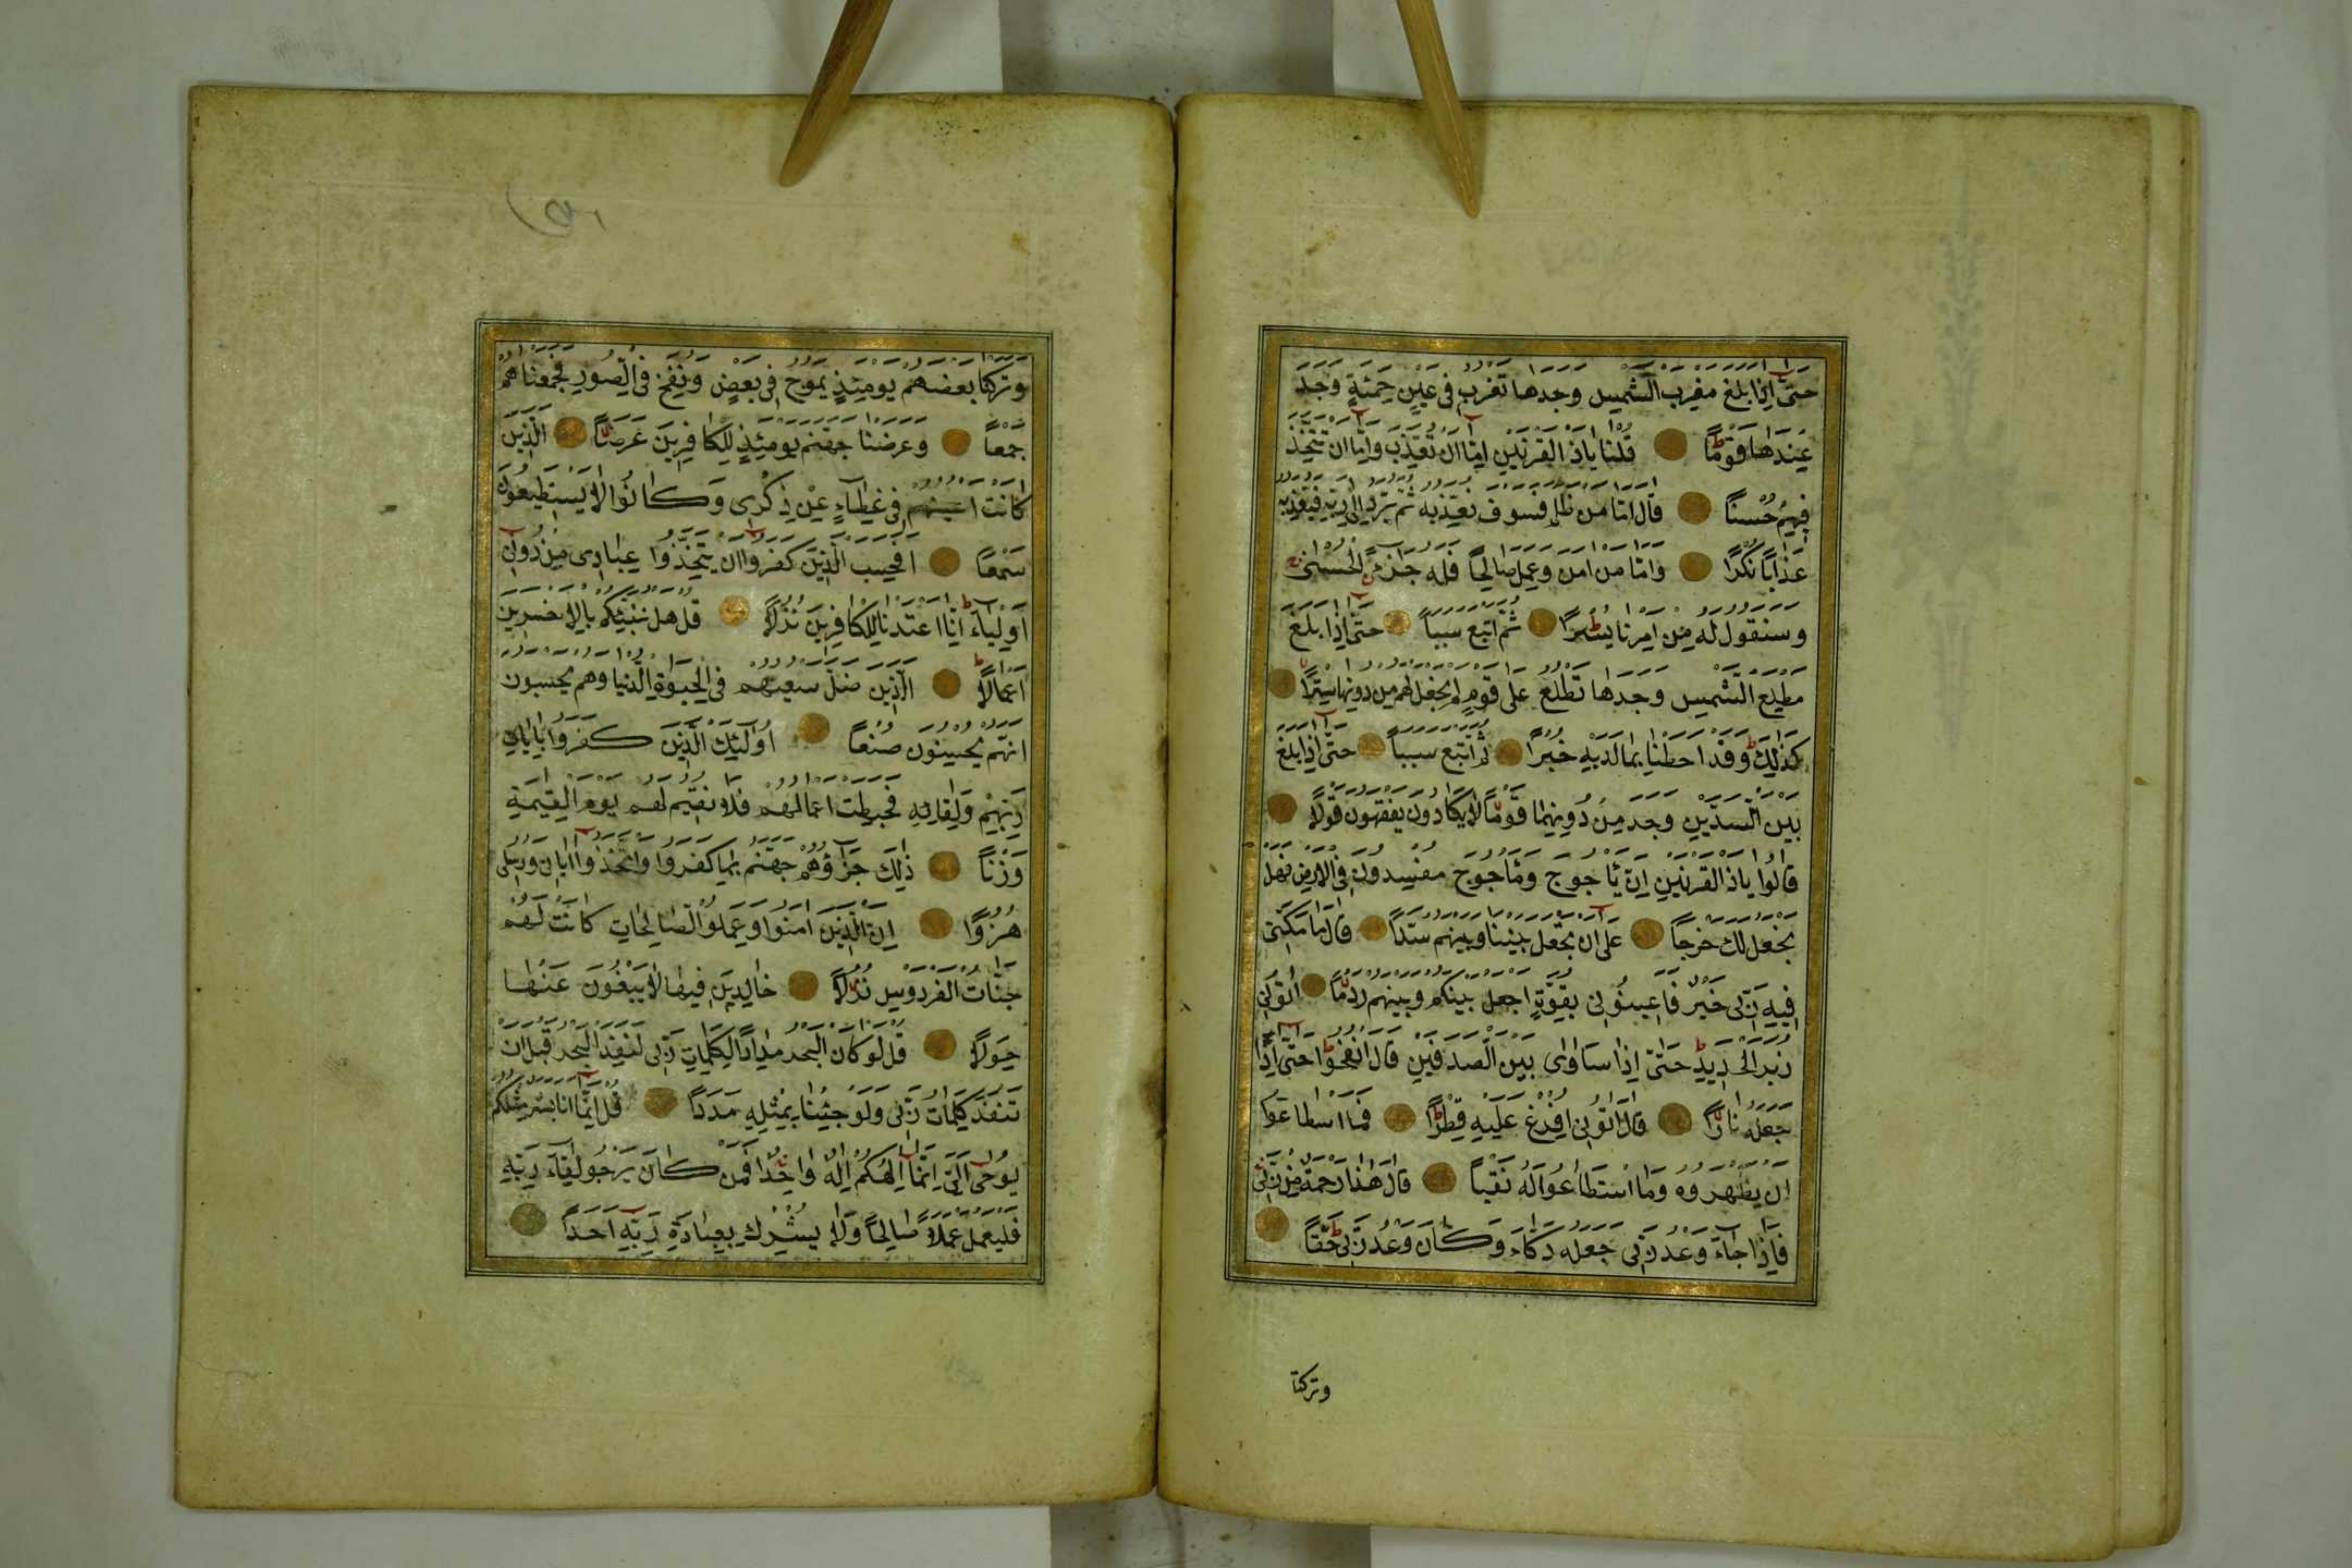 حتى اذا بلغ مغرب الشمس وجدها تغرب فى عين حمئة وجد
عندها قوما قلنا ياذا القرنين اما ان تعذب واما ان تتخذ
فيهم حسنا قال اما من ظلم فسوف نعذبه ثم يرد الى ربه فيعذبه
عذابا نكرا واما من امن وعمل صالحا فله جزاء الحسنى
وسنقول له من امرنا يسرا ثم اتبع سببا حتى اذا بلغ
مطلع الشمس وجدها تطلع على قوم لم نجعل لهم من دونها سترا
كذلك وقد احطنا بما لديه خبرا ثم اتبع سببا حتى اذا بلغ
بين السدين وجد من دونهما قوما لا يكادون يفقهون قولا
قالوا ياذا القرنين ان ياجوج وماجوج مفسدون فى الارض فهل
نجعل لك خرجا على ان تجعل بيننا وبينهم سدا قال ما مكنى
فيه ربى خير فاعينونى بقوة اجعل بينكم وبينهم ردما اتونى
زبر الحديد حتى اذا ساوى بين الصدفين قال انفخوا حتى اذا
جعله نارا قال اتونى افرغ عليه قطرا فما اسطاعوا
ان يظهروه وما استطاعوا له نقبا قال هذا رحمة من ربى
فاذا جاء وعد ربى جعله دكاء وكان وعد ربى حقا
وتركنا
وتركنا بعضهم يومئذ يموج فى بعض ونفخ فى الصور فجمعناهم
جمعا وعرضنا جهنم يومئذ للكافرين عرضا الذين
كانت اعينهم فى غطاء عن ذكرى وكانوا لا يستطيعون
سمعا افحسب الذين كفروا ان يتخذوا عبادى من دونى
اولياء انا اعتدنا للكافرين نزلا قل هل ننبئكم بالاخسرين
اعمالا الذين ضل سعيهم فى الحيوة الدنيا وهم يحسبون
انهم يحسنون صنعا اولئك الذين كفروا باياات
ربهم ولقائه فحبطت اعمالهم فلا نقيم لهم يوم القيمة
وزنا ذلك جزاؤهم جهنم بما كفروا واتخذوا اياتى ورسلى
هزوا ان الذين امنوا وعملوا الصالحات كانت لهم
جنات الفردوس نزلا خالدين فيها لا يبغون عنها
حولا قل لو كان البحر مدادا لكلمات ربى لنفد البحر قبل ان
تنفد كلمات ربى ولو جئنا بمثله مددا قل انما انا بشر مثلكم
يوحى الى انما الهكم اله واحد فمن كان يرجو لقاء ربه
فليعمل عملا صالحا ولا يشرك بعبادة ربه احدا